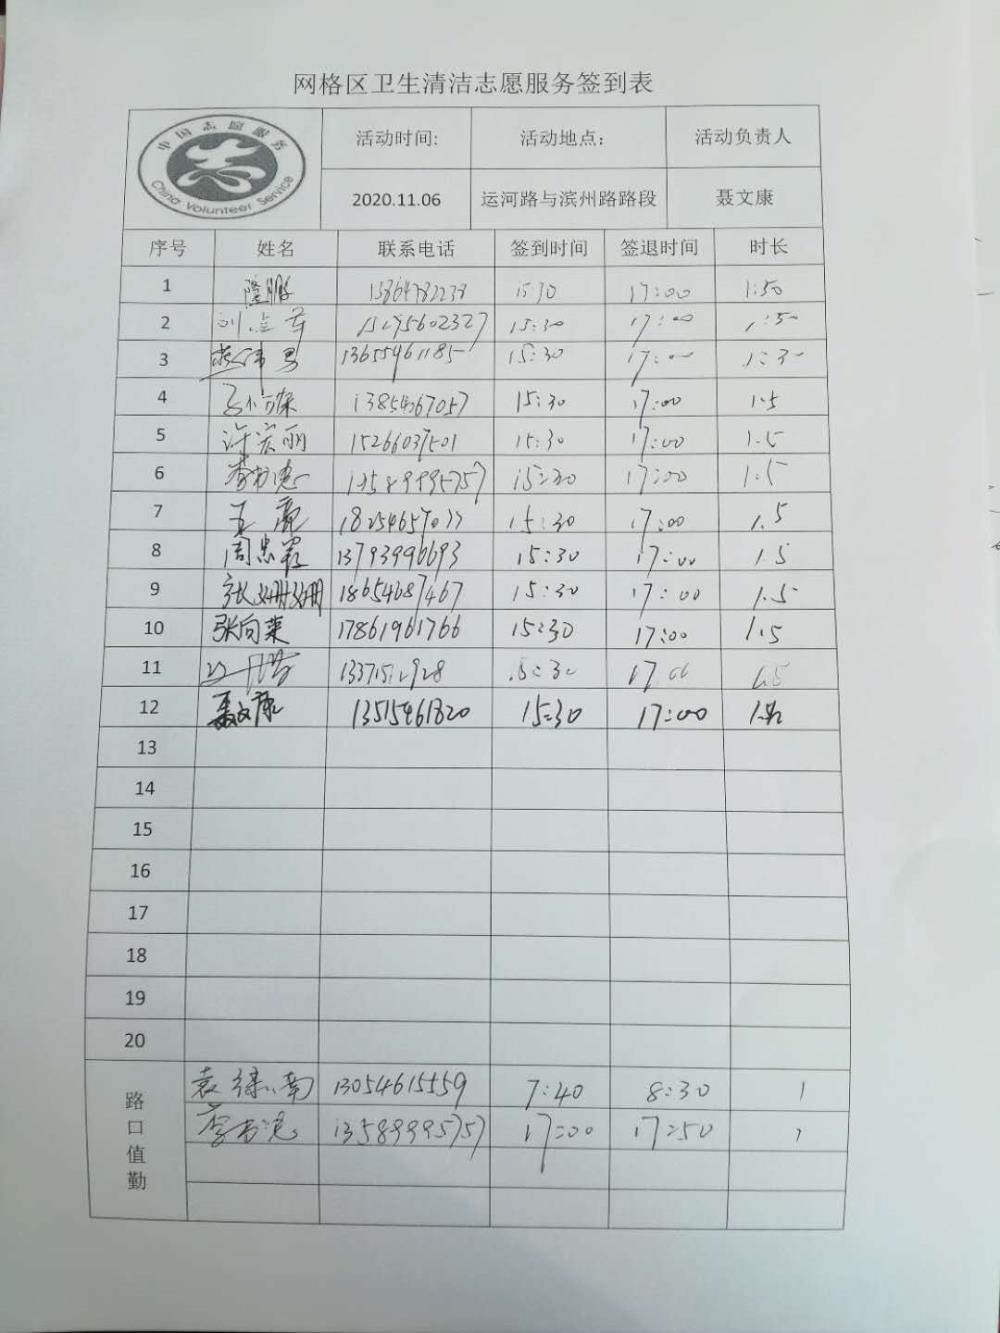 网格区卫生清洁志愿服务签到表
中国志愿服务
China Volunteer Service
活动时间: 活动地点: 活动负责人
2020.11.06 运河路与滨州路路段 聂文康
序号 姓名 联系电话 签到时间 签退时间 时长
1 隆鹏 15:30 17:00 1:30
2 15:30 17:00 1:30
3 13655461185 15:30 17:00 1:30
4 13854667057 15:30 17:00 1.5
5 许宏丽 15266037501 15:30 17:00 1.5
6 13589995757 15:30 17:00 1.5
7 15:30 17:00 1.5
8 13793996693 15:30 17:00 1.5
9 张姗姗 18654687467 15:30 17:00 1.5
10 张向荣 17861961766 15:30 17:00 1.5
11 15:30 17:00 1.5
12 聂文康 13515461820 15:30 17:00
13
14
15
16
17
18
19
20
路口值勤
袁绿南 13054615559 7:40 8:30 1
13589995757 17:00 17:50 1